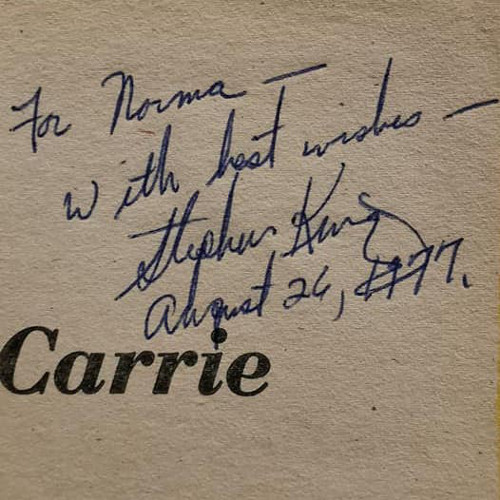 For Norma —
With best wishes —
Stephen King
August 26, '77.
Carrie